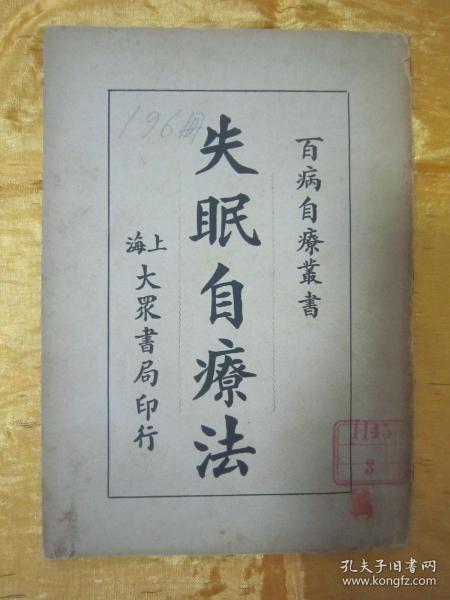 百病自療叢書
失眠自療法
上海
大眾書局印行
196冊
1145
3
孔夫子旧书网
www.kongfz.com